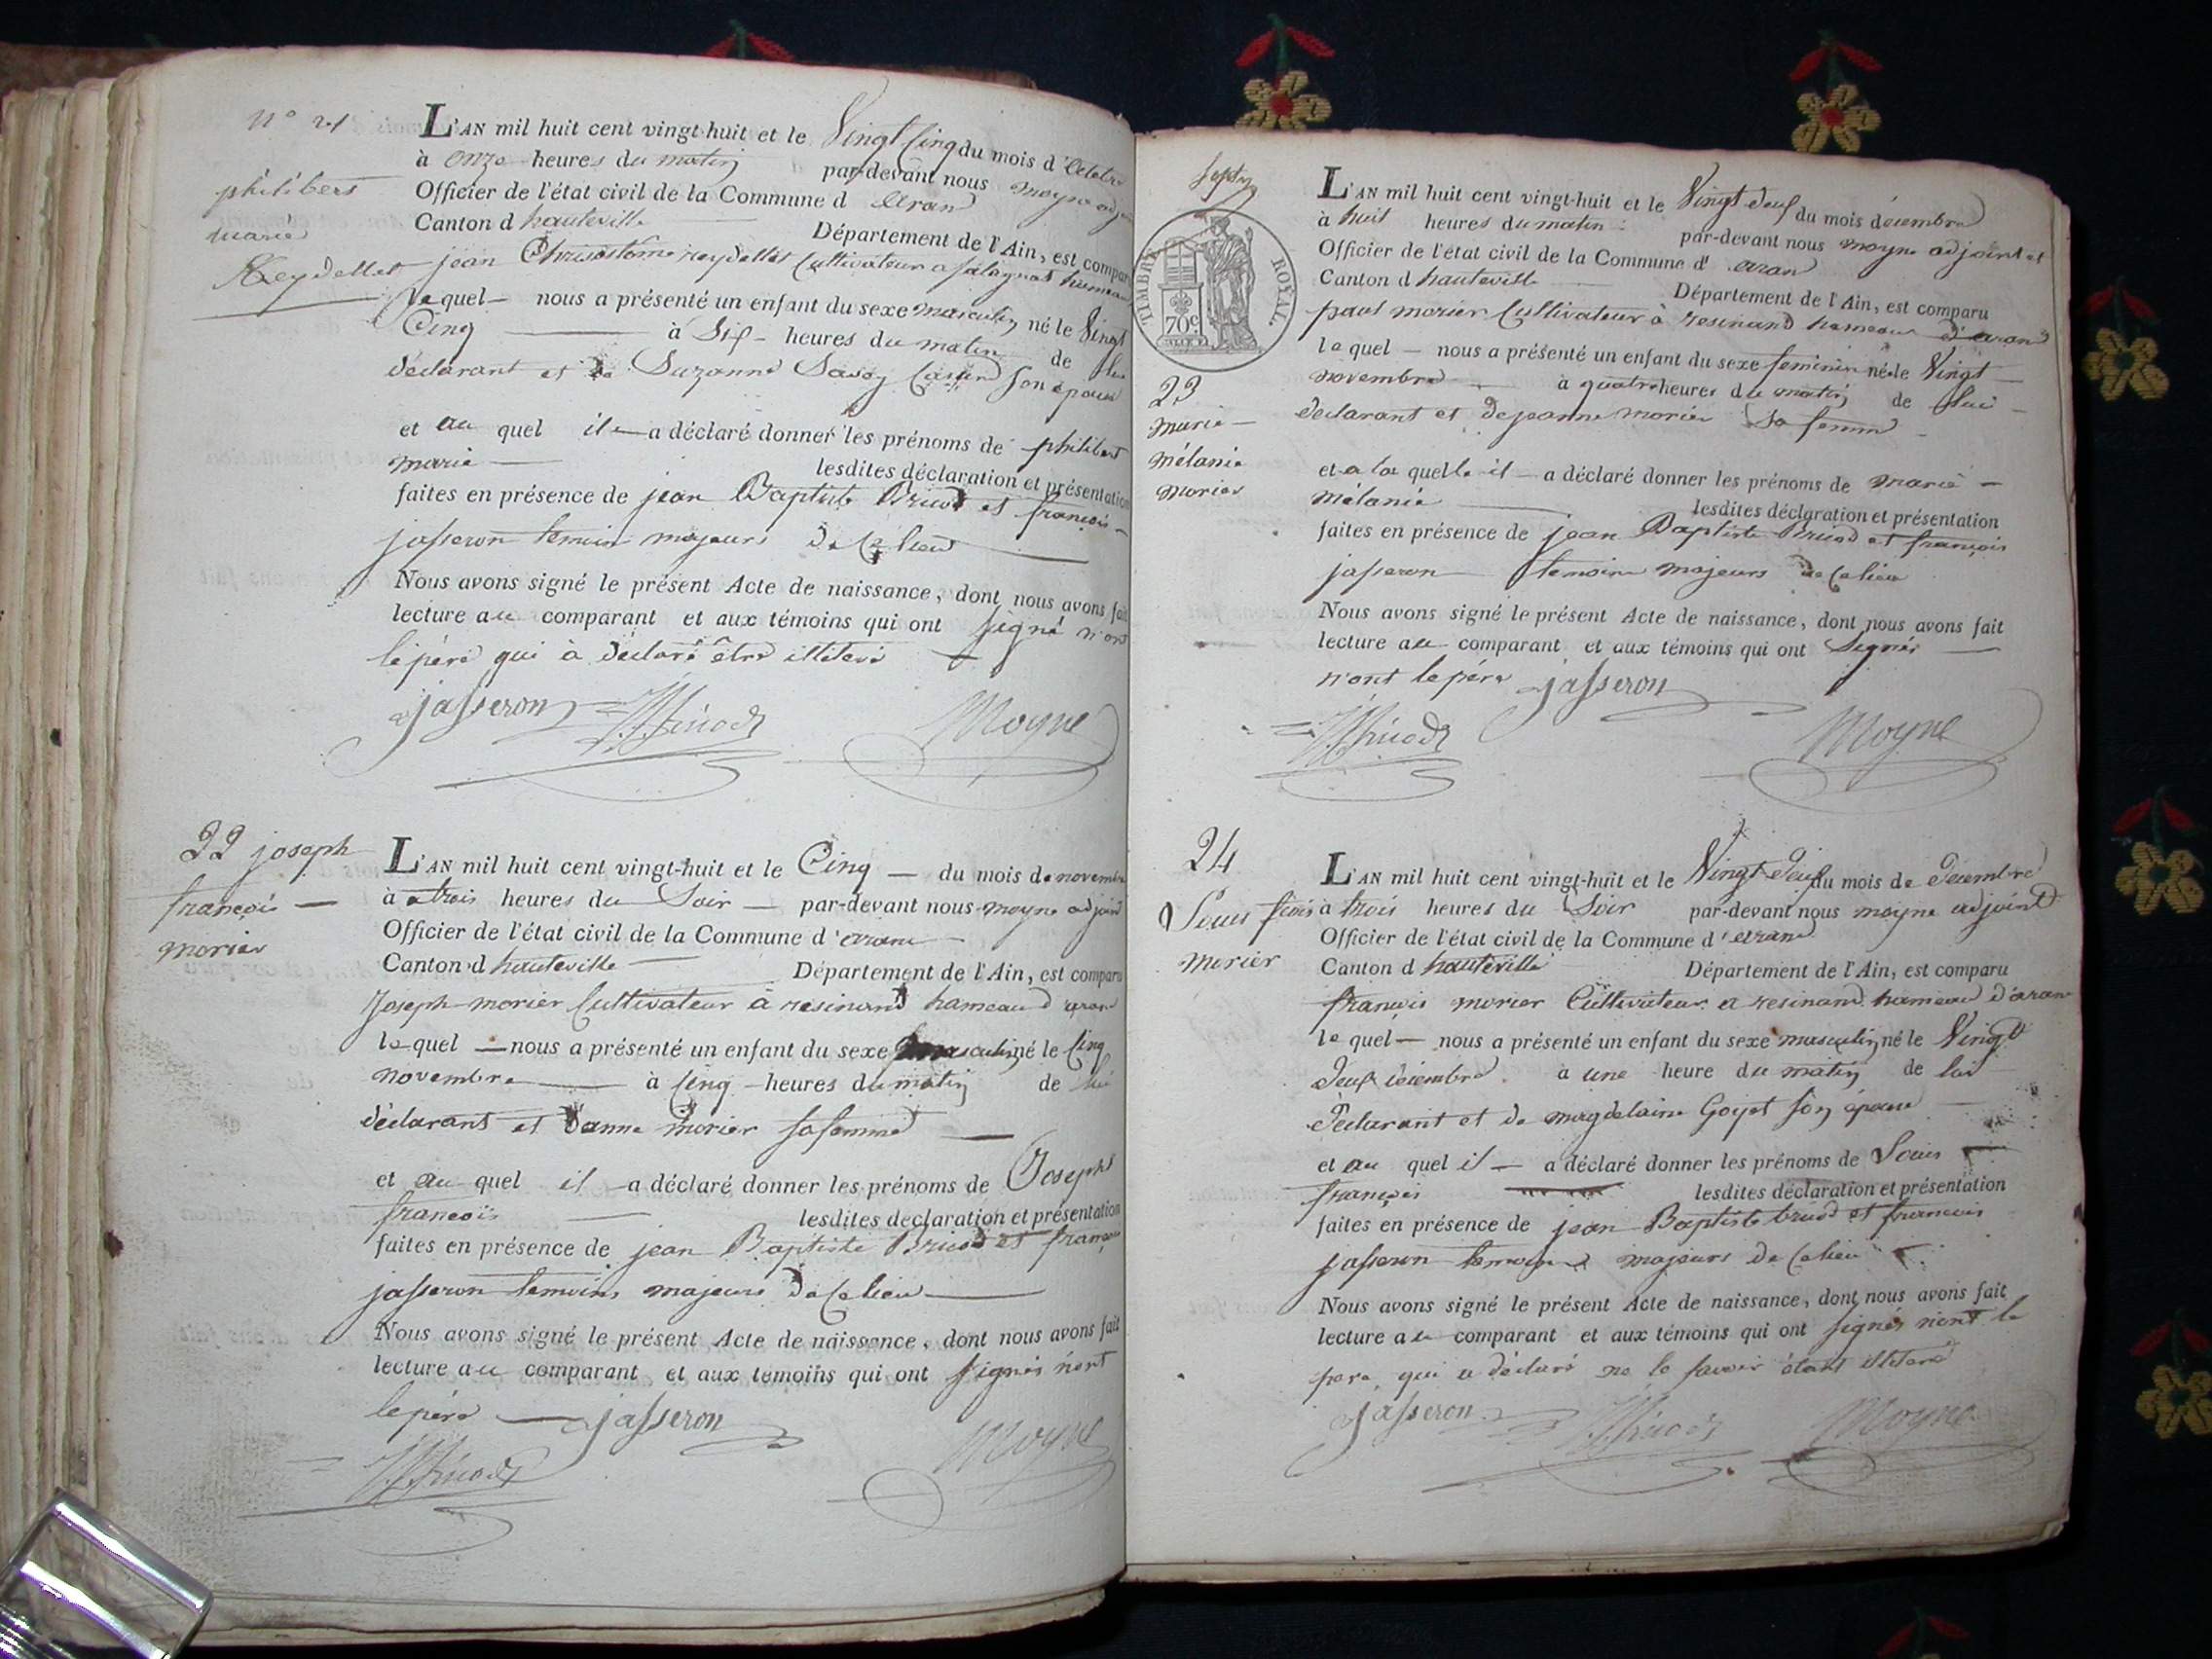 N° 21
philibert
marie
Reydellet
L'AN mil huit cent vingt-huit et le Vingt Cinq du mois d'Octobre
à onze heures du matin par-devant nous moyne adj
Officier de l'état civil de la Commune d aran
Canton d hauteville Département de l'Ain, est comparu
jean Chrisostome reydellet Cultivateur a hameau
le quel nous a présenté un enfant du sexe masculin né le Vingt
Cinq à Six heures du matin de lui
déclarant et de Suzanne Savey son épouse
et au quel il a déclaré donner les prénoms de philibert
marie lesdites déclaration et présentation
faites en présence de jean Baptiste Bricod et françois
jasseron temoin majeurs de Ce lieu
Nous avons signé le présent Acte de naissance, dont nous avons fait
lecture au comparant et aux témoins qui ont signé non
le père qui à déclaré être illiteré
jasseron JBricod Moyne
22 joseph
françois
morier
L'AN mil huit cent vingt-huit et le Cinq du mois de novembre
à trois heures du Soir par-devant nous moyne adjoint
Officier de l'état civil de la Commune d'aran
Canton d hauteville Département de l'Ain, est comparu
Joseph morier Cultivateur à resinand hameau d aran
le quel nous a présenté un enfant du sexe masculin né le Cinq
novembre à Cinq heures du matin de lui
déclarant et d'anne morier sa femme
et au quel il a déclaré donner les prénoms de Joseph
françois lesdites declaration et présentation
faites en présence de jean Baptiste Bricod et françois
jasseron temoins majeurs de Ce lieu
Nous avons signé le présent Acte de naissance, dont nous avons fait
lecture au comparant et aux temoins qui ont signés nont
le père jasseron
JBricod Moyne
Sept
TIMBRE ROYAL.
70c
23
marie
mélanie
morier
L'AN mil huit cent vingt-huit et le Vingt deux du mois décembre
à huit heures du matin par-devant nous moyne adjoint et
Officier de l'état civil de la Commune d' aran
Canton d hauteville Département de l'Ain, est comparu
paul morier Cultivateur à resinand hameau d'aran
le quel nous a présenté un enfant du sexe feminin né le Vingt
novembre à quatre heures du matin de lui
declarant et de jeanne morier Sa femme
et a la quelle il a déclaré donner les prénoms de marie
mélanie lesdites déclaration et présentation
faites en présence de jean Baptiste Bricod et françois
jasseron temoins majeurs de Ce lieu
Nous avons signé le présent Acte de naissance, dont nous avons fait
lecture au comparant et aux témoins qui ont Signés
n'ont le père jasseron
JBricod Moyne
24
Louis fcois
morier
L'AN mil huit cent vingt-huit et le Vingt Deux du mois de Décembre
à trois heures du Soir par-devant nous moyne adjoint
Officier de l'état civil de la Commune d'aran
Canton d hauteville Département de l'Ain, est comparu
françois morier Cultivateur a resinand hameau d'aran
le quel nous a présenté un enfant du sexe masculin né le Vingt
Deux décembre à une heure du matin de lui
Déclarant et de magdelaine Goyet son épouse
et au quel il a déclaré donner les prénoms de Louis
françois lesdites déclaration et présentation
faites en présence de jean Baptiste bricod et françois
jasseron temoins majeurs de Ce lieu
Nous avons signé le présent Acte de naissance, dont nous avons fait
lecture au comparant et aux témoins qui ont signés nont le
pere, qui a déclaré ne le savoir étant illiteré
jasseron JBricod Moyne